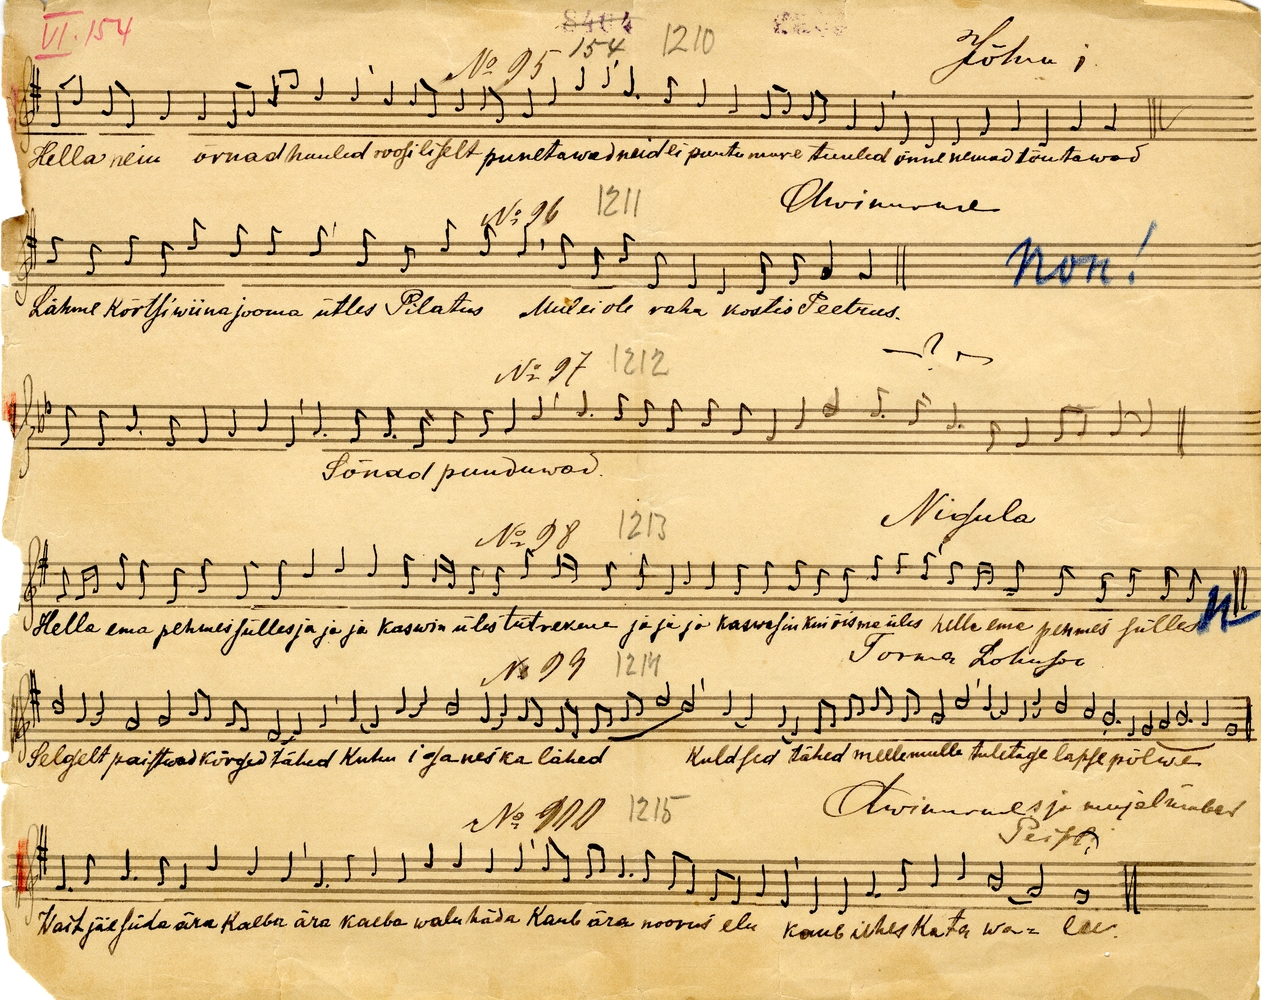 VI. 154
8404
№ 95 154 1210 Jõhvi j.
Hella neiu õrnad huuled roosiliselt punetawad neid ei puutu mure tuuled õnne nemad tõutawad
№ 96 1211 Awinurme
Non!
Lähme kõrtsi wiina jooma ütles Pilatus Mul ei ole raha kostis Peetrus.
№ 97 1212 — ? —
Sõnad puuduwad.
№ 98 1213 Nigula
Hella ema pehmes sülles ja ja ja kaswin üles ja ja ja kaswasin kui õis ma üles hella ema pehmes sülles
N
№ 99 1214 Torma Lohusu
Selgelt paistwad kõrged tähed Kuhu iganes ka lähed Kuldsed tähed meele mulle tuletage lapse põlwe
№ 100 1215 Awinurmes ja mujal ümber
Peipsi
Wait jäe süda ära Kaeba ära kaeba walu häda Kaub ära noorus elu kaub ühes Ka ta wa= lu.